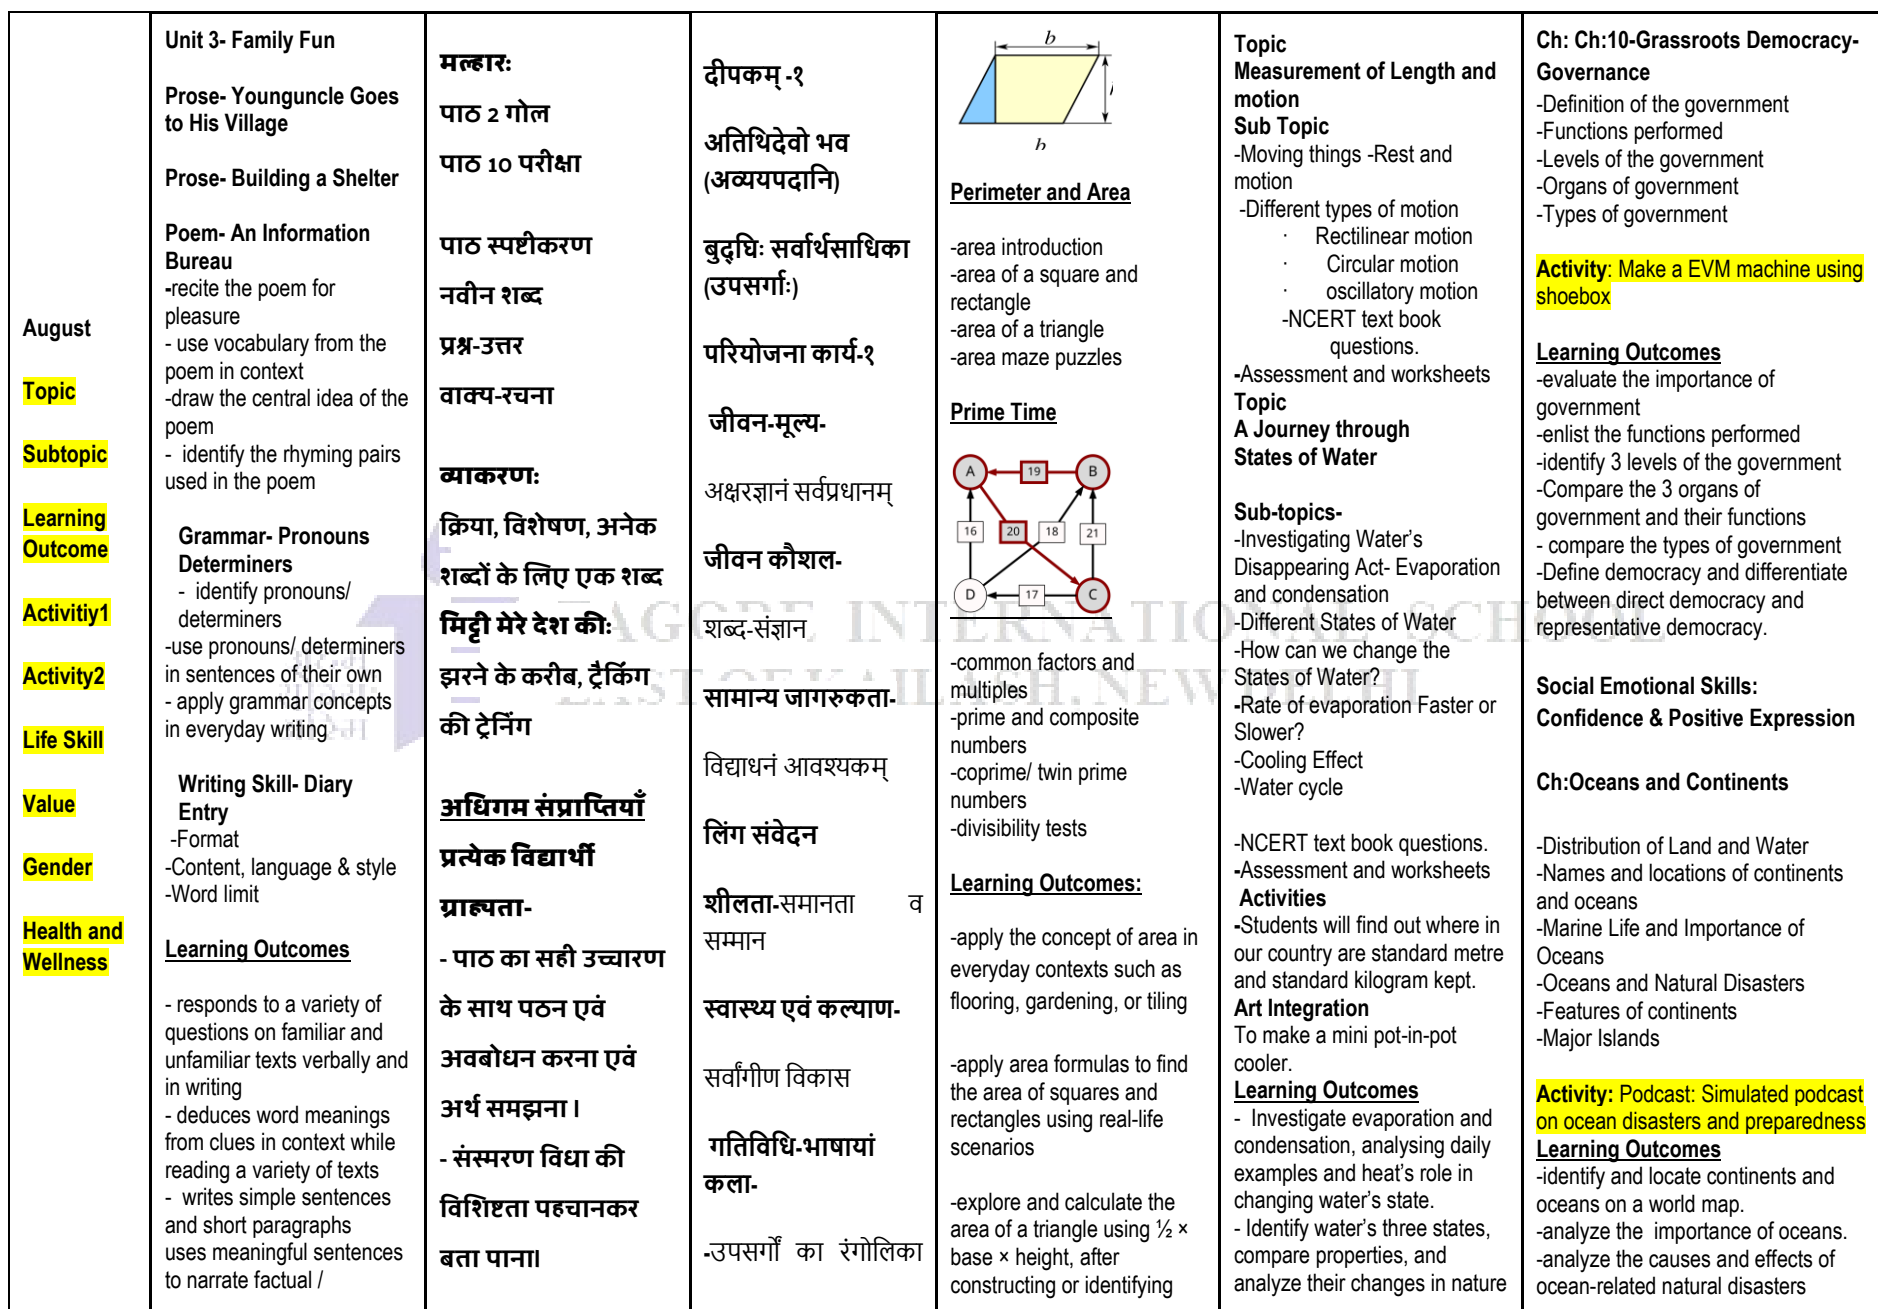 August
Topic
Subtopic
Learning
Outcome
Activitiy1
Activity2
Life Skill
Value
Gender
Health and
Wellness
Unit 3- Family Fun
Prose- Younguncle Goes
to His Village
Prose- Building a Shelter
Poem- An Information
Bureau
-recite the poem for
pleasure
- use vocabulary from the
poem in context
-draw the central idea of the
poem
- identify the rhyming pairs
used in the poem
Grammar- Pronouns
Determiners
- identify pronouns/
determiners
-use pronouns/ determiners
in sentences of their own
- apply grammar concepts
in everyday writing
Writing Skill- Diary
Entry
-Format
-Content, language & style
-Word limit
Learning Outcomes
- responds to a variety of
questions on familiar and
unfamiliar texts verbally and
in writing
- deduces word meanings
from clues in context while
reading a variety of texts
- writes simple sentences
and short paragraphs
uses meaningful sentences
to narrate factual /
मल्हारः
पाठ 2 गोल
पाठ 10 परीक्षा
पाठ स्पष्टीकरण
नवीन शब्द
प्रश्न-उत्तर
वाक्य-रचना
व्याकरणः
क्रिया, विशेषण, अनेक
शब्दों के लिए एक शब्द
मिट्टी मेरे देश कीः
झरने के करीब, ट्रैकिंग
की ट्रेनिंग
अधिगम संप्राप्तियाँ
प्रत्येक विद्यार्थी
ग्राह्यता-
- पाठ का सही उच्चारण
के साथ पठन एवं
अवबोधन करना एवं
अर्थ समझना ।
- संस्मरण विधा की
विशिष्टता पहचानकर
बता पाना।
दीपकम् -१
अतिथिदेवो भव
(अव्ययपदानि)
बुद्धिः सर्वार्थसाधिका
(उपसर्गाः)
परियोजना कार्य-१
जीवन-मूल्य-
अक्षरज्ञानं सर्वप्रधानम्
जीवन कौशल-
शब्द-संज्ञान
सामान्य जागरुकता-
विद्याधनं आवश्यकम्
लिंग संवेदन
शीलता-समानता व
सम्मान
स्वास्थ्य एवं कल्याण-
सर्वांगीण विकास
गतिविधि-भाषायां
कला-
-उपसर्गों का रंगोलिका
b
b
Perimeter and Area
-area introduction
-area of a square and
rectangle
-area of a triangle
-area maze puzzles
Prime Time
A 19 B
16 20 18 21
D 17 C
-common factors and
multiples
-prime and composite
numbers
-coprime/ twin prime
numbers
-divisibility tests
Learning Outcomes:
-apply the concept of area in
everyday contexts such as
flooring, gardening, or tiling
-apply area formulas to find
the area of squares and
rectangles using real-life
scenarios
-explore and calculate the
area of a triangle using ½ ×
base × height, after
constructing or identifying
Topic
Measurement of Length and
motion
Sub Topic
-Moving things -Rest and
motion
-Different types of motion
· Rectilinear motion
· Circular motion
· oscillatory motion
-NCERT text book
questions.
-Assessment and worksheets
Topic
A Journey through
States of Water
Sub-topics-
-Investigating Water's
Disappearing Act- Evaporation
and condensation
-Different States of Water
-How can we change the
States of Water?
-Rate of evaporation Faster or
Slower?
-Cooling Effect
-Water cycle
-NCERT text book questions.
-Assessment and worksheets
Activities
-Students will find out where in
our country are standard metre
and standard kilogram kept.
Art Integration
To make a mini pot-in-pot
cooler.
Learning Outcomes
- Investigate evaporation and
condensation, analysing daily
examples and heat's role in
changing water's state.
- Identify water's three states,
compare properties, and
analyze their changes in nature
Ch: Ch:10-Grassroots Democracy-
Governance
-Definition of the government
-Functions performed
-Levels of the government
-Organs of government
-Types of government
Activity: Make a EVM machine using
shoebox
Learning Outcomes
-evaluate the importance of
government
-enlist the functions performed
-identify 3 levels of the government
-Compare the 3 organs of
government and their functions
- compare the types of government
-Define democracy and differentiate
between direct democracy and
representative democracy.
Social Emotional Skills:
Confidence & Positive Expression
Ch:Oceans and Continents
-Distribution of Land and Water
-Names and locations of continents
and oceans
-Marine Life and Importance of
Oceans
-Oceans and Natural Disasters
-Features of continents
-Major Islands
Activity: Podcast: Simulated podcast
on ocean disasters and preparedness
Learning Outcomes
-identify and locate continents and
oceans on a world map.
-analyze the importance of oceans.
-analyze the causes and effects of
ocean-related natural disasters
TAGORE INTERNATIONAL SCHOOL
EAST OF KAILASH, NEW DELHI